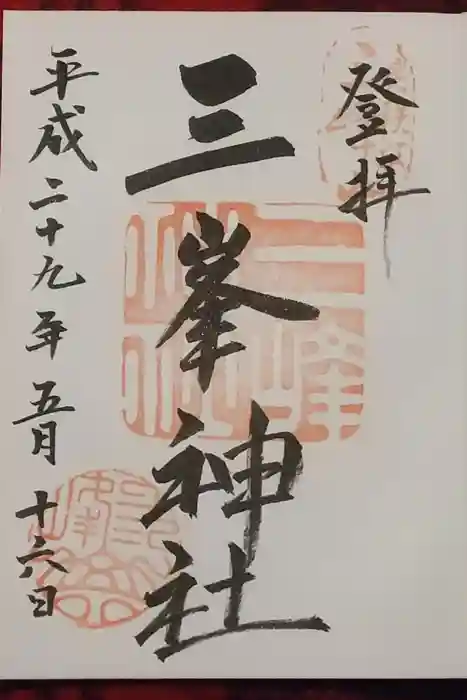 登拝
三峯神社
平成二十九年五月十六日